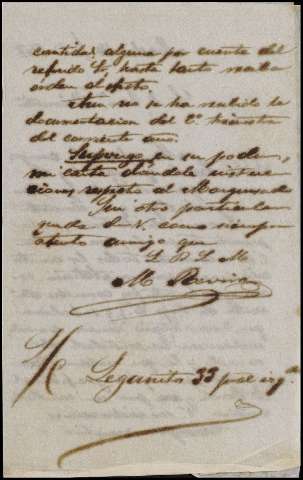 cantidad alguna por cuenta del
referido Sr. hasta tanto reciba
orden al efecto.
Aun no se ha recibido la
documentacion del 2º trimestre
del corriente año.
Supongo en su poder,
mi carta dandole instruc-
ciones respecto al Marques de
Sin otro particular
queda de V. como siempre
atento amigo que
B S M
M
S/C Leganitos 33 pral izqª